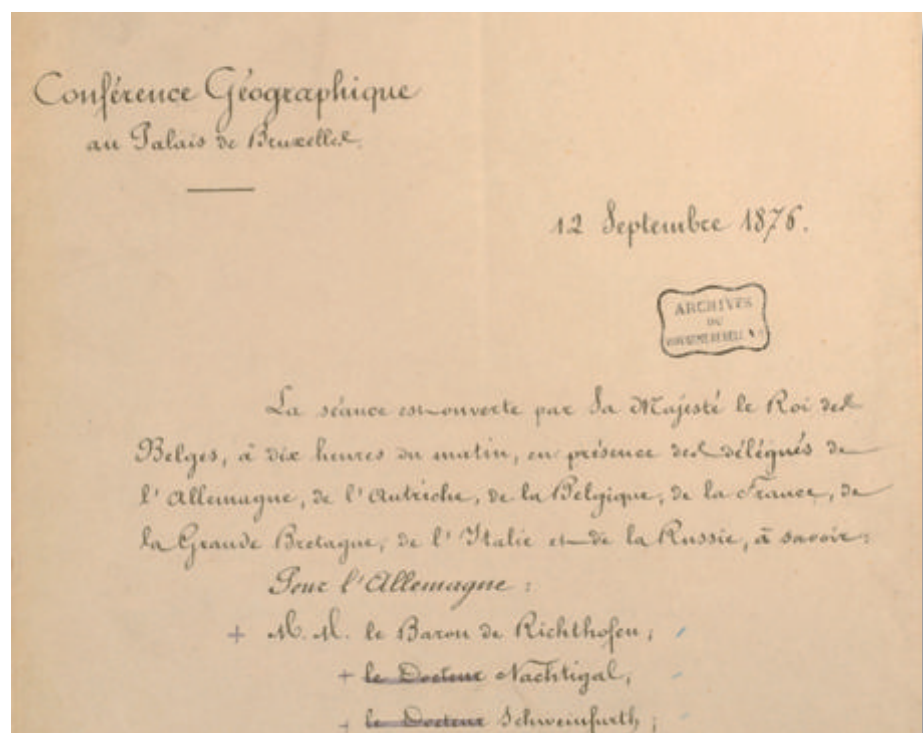 Conférence Géographique
au Palais de Bruxelles.
12 Septembre 1876.
ARCHIVES
DU
La séance est ouverte par Sa Majesté le Roi des
Belges, à dix heures du matin, en présence des délégués de
l'Allemagne, de l'Autriche, de la Belgique, de la France, de
la Grande Bretagne, de l'Italie et de la Russie, à savoir:
Pour l'Allemagne :
+ M. M. le Baron de Richthofen;
+ le Docteur Nachtigal,
+ le Docteur Schweinfurth;